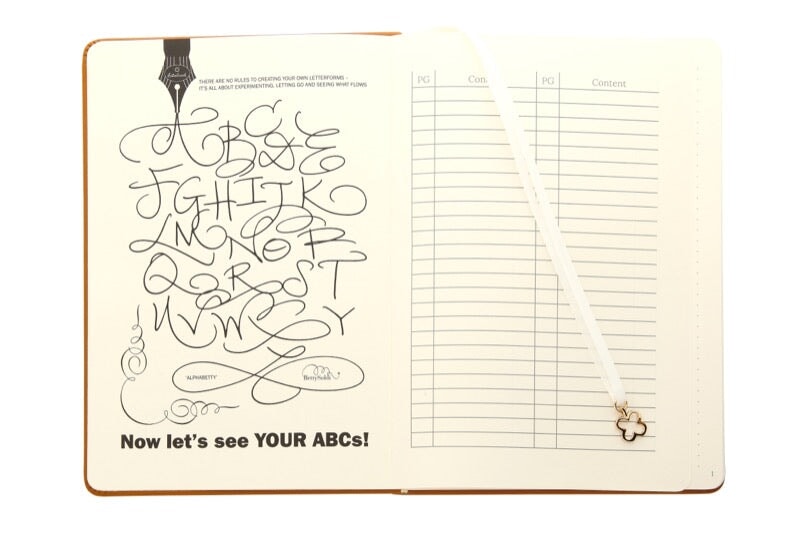 THERE ARE NO RULES TO CREATING YOUR OWN LETTERFORMS –
IT'S ALL ABOUT EXPERIMENTING, LETTING GO AND SEEING WHAT FLOWS
A B C D E
F G H I J K
L M N O P
Q R S T
U V W X Y
Z
'ALPHABETTY'
BettySoldi
Now let's see YOUR ABCs!
PG Con PG Content
1